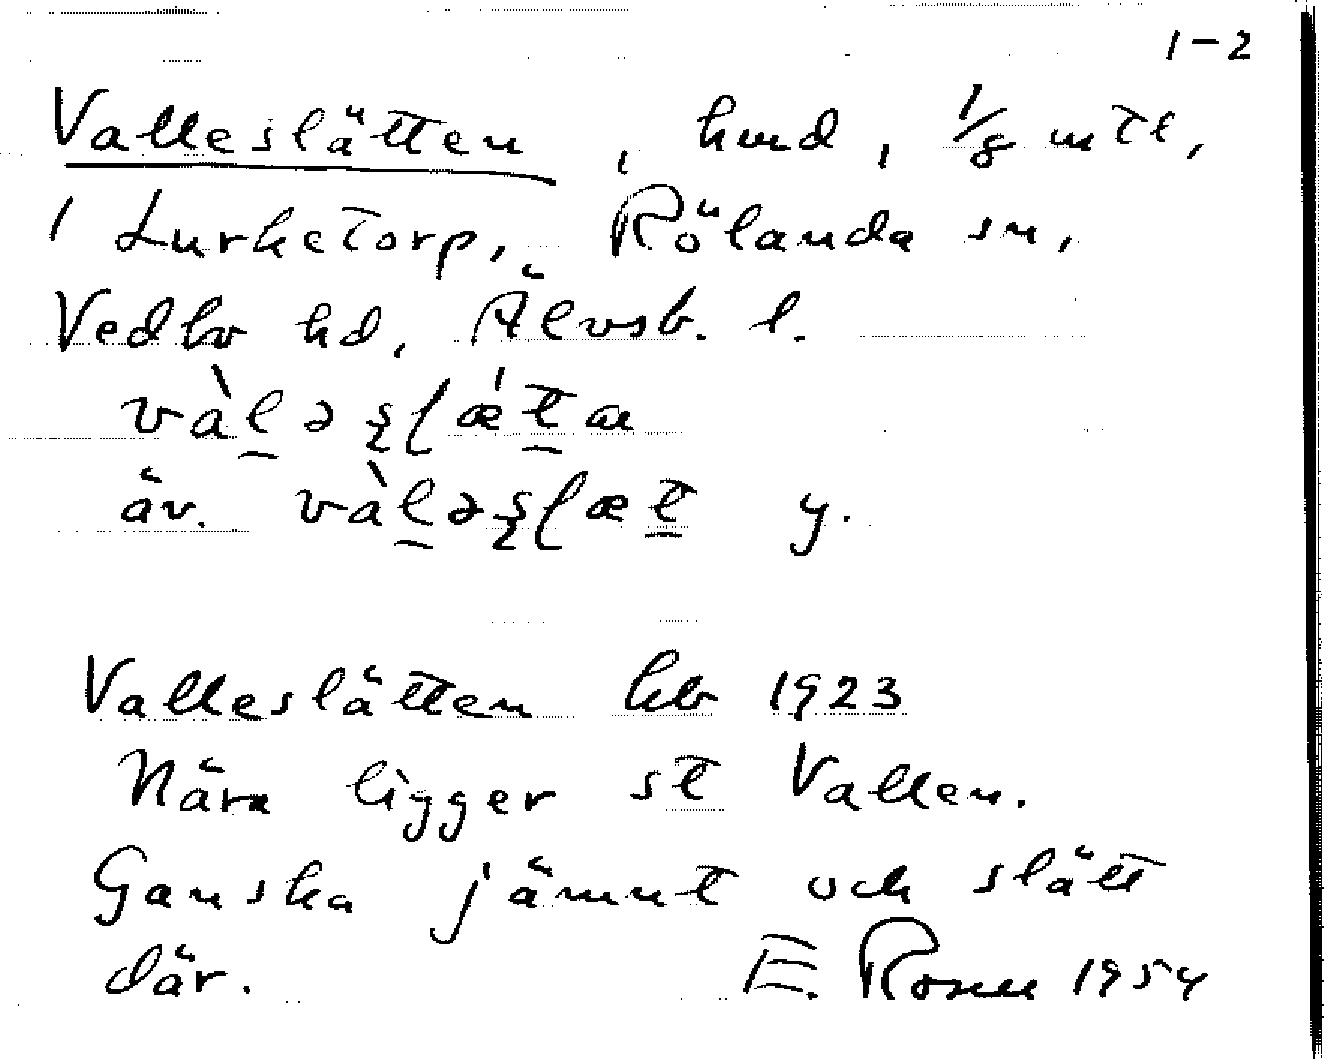 1-2
Valleslätten, hmd, 1/8 mtl,
1 Lurketorp, Rölanda sn,
Vedbo hd, Älvsb. l.
vàḻəʂɭǽṯa
äv. vàḻəʂɭæṯ y.
Valleslätten hb 1923
Nära ligger st Vallen.
Ganska jämnt och slätt
där. E. Rosell 1954